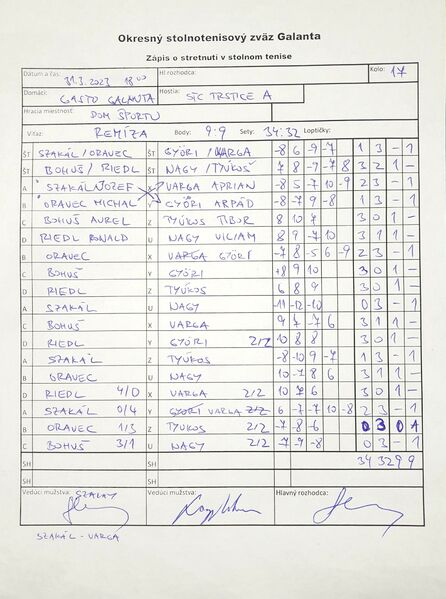 Okresný stolnotenisový zväz Galanta
Zápis o stretnutí v stolnom tenise
Dátum a čas: 31.3.2023 18 00 Hl rozhodca: Kolo: 17
Domáci: GASTO GALANTA Hostia: STC TRSTICE A
Hracia miestnosť: DOM ŠPORTU
Víťaz: REMÍZA Body: 9:9 Sety: 34:32 Loptičky:
ŠT SZAKÁL/ORAVEC ŠT GYÖRI/VARGA -8 6 -9 -7 1 3 - 1
ŠT BOHUŠ/RIEDL ŠT NAGY/TYÚKOŠ 7 8 -9 -7 8 3 2 1 -
A SZAKÁL JOZEF X VARGA APRIAN -8 5 -7 10 -9 2 3 - 1
B ORAVEC MICHAL Y GYÖRI ARPÁD -8 -7 9 -8 1 3 - 1
C BOHUŠ AUREL Z TYÚKOS TIBOR 8 10 7 3 0 1 -
D RIEDL RONALD U NAGY VILIAM 8 9 -7 10 3 1 1 -
B ORAVEC X VARGA GYÖRI -7 8 -5 6 -9 2 3 - 1
C BOHUŠ Y GYÖRI 8 9 10 3 0 1 -
D RIEDL Z TYÚKOS 6 8 9 3 0 1 -
A SZAKÁL U NAGY -11 -12 -10 0 3 - 1
C BOHUŠ X VARGA 9 7 -7 6 3 1 1 -
D RIEDL Y GYÖRI 2/2 10 8 8 3 0 1 -
A SZAKÁL Z TYÚKOS -8 -10 9 -7 1 3 - 1
B ORAVEC U NAGY 10 -7 8 6 3 1 1 -
D RIEDL 4/0 X VARGA 2/2 10 7 6 3 0 1 -
A SZAKÁL 0/4 Y GYÖRI VARGA 2/2 6 -7 -7 10 -8 2 3 - 1
B ORAVEC 1/3 Z TYÚKOS 2/2 -7 -8 -6 0 3 0 1
C BOHUŠ 3/1 U NAGY 2/2 -7 -9 -8 0 3 - 1
SH SH 34 32 9 9
SH SH
Vedúci mužstva: SZALAY Vedúci mužstva: Hlavný rozhodca:
SZAKÁL - VARGA